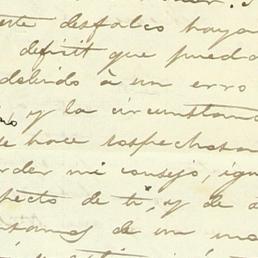 este desfalco haya
deficit que pueda
debido à un erro
y la circunstan
hace sospechosa
der mi consejo, igu
pecto de ti, y de a
samos de un mo